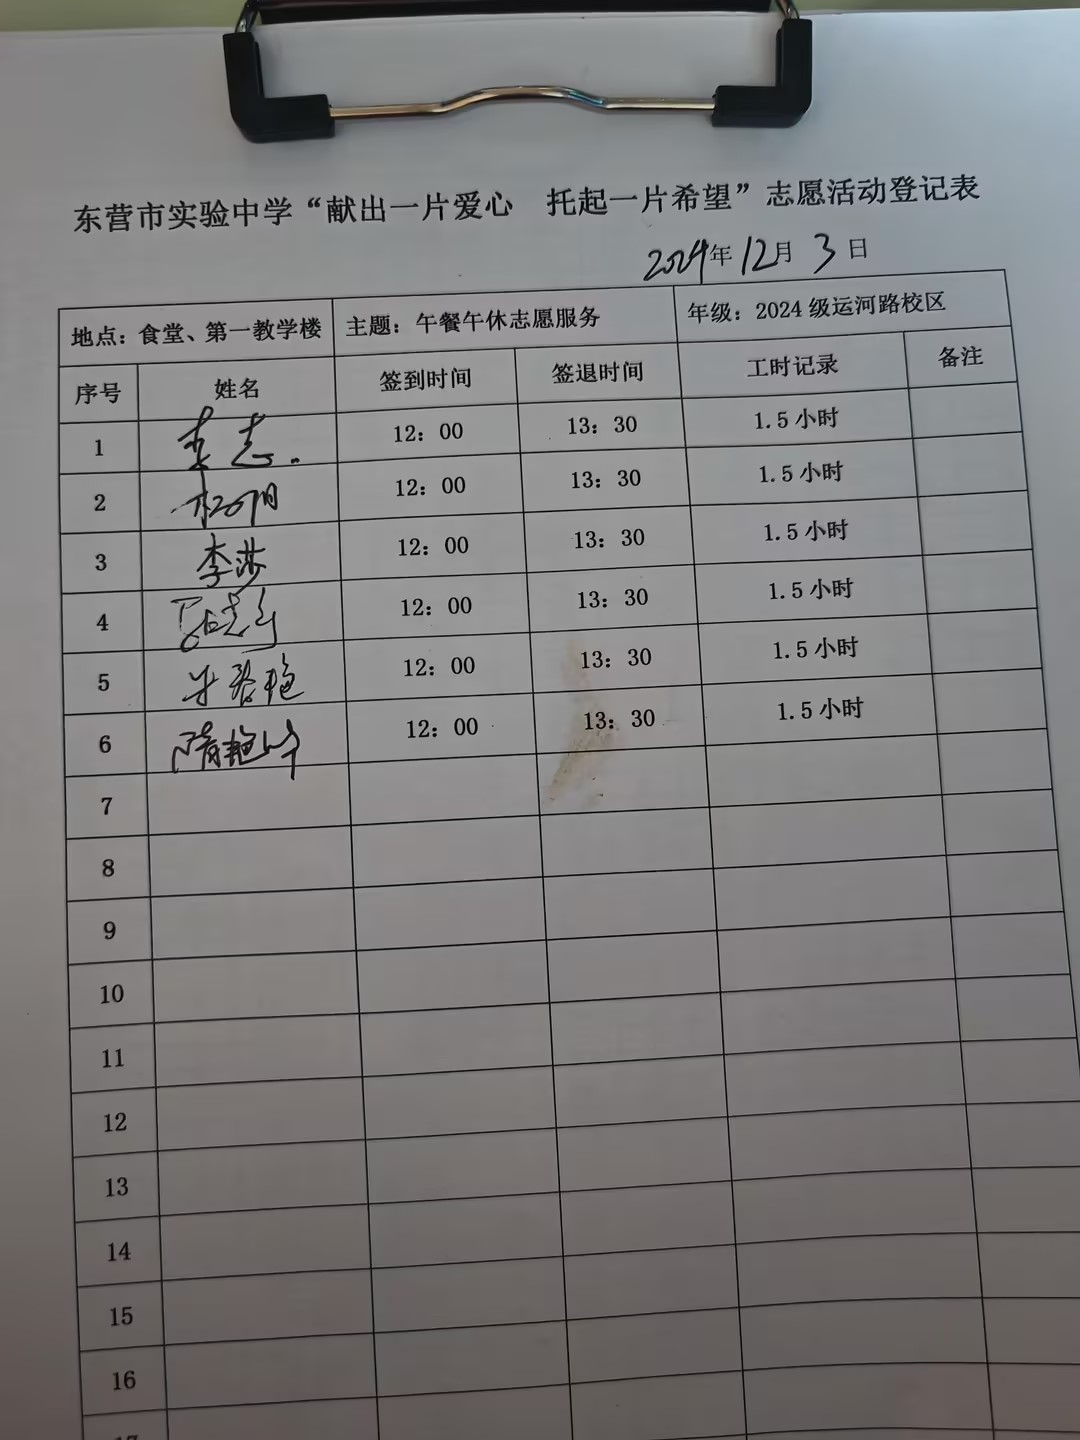 东营市实验中学“献出一片爱心 托起一片希望”志愿活动登记表
2024年12月3日
地点：食堂、第一教学楼 主题：午餐午休志愿服务 年级：2024级运河路校区
序号 姓名 签到时间 签退时间 工时记录 备注
1 李志 12：00 13：30 1.5小时
2 12：00 13：30 1.5小时
3 李莎 12：00 13：30 1.5小时
4 12：00 13：30 1.5小时
5 12：00 13：30 1.5小时
6 12：00 13：30 1.5小时
7
8
9
10
11
12
13
14
15
16
17